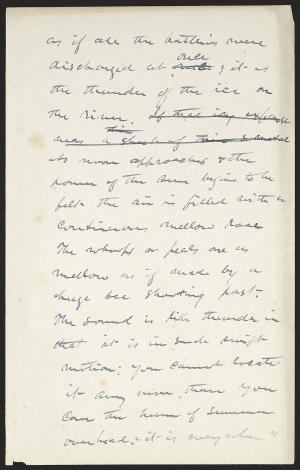 as if all the batteries were
discharged at once; it is
the thunder of the ice on
the river. If that icy expanse
was a sheet of thin metal
As noon approaches & the
power of the sun begins to be
felt the air is filled with a
continuous mellow roar
The whoops or peals are as
mellow as if made by a
huge bee shooting past.
The sound is like thunder in
that it is in such swift
motion; you cannot locate
it any more than you
can the hum of summer
overhead. it is everywhere &